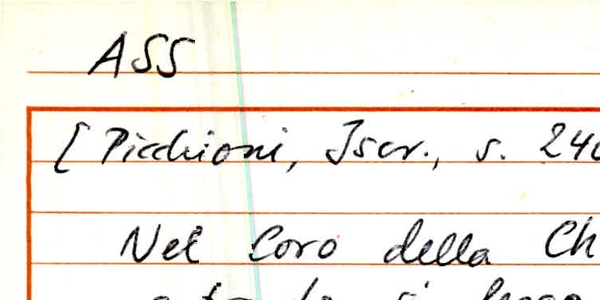 ASS
[Picchioni, Iscr., s. 240
Nel Coro della Ch
si legge